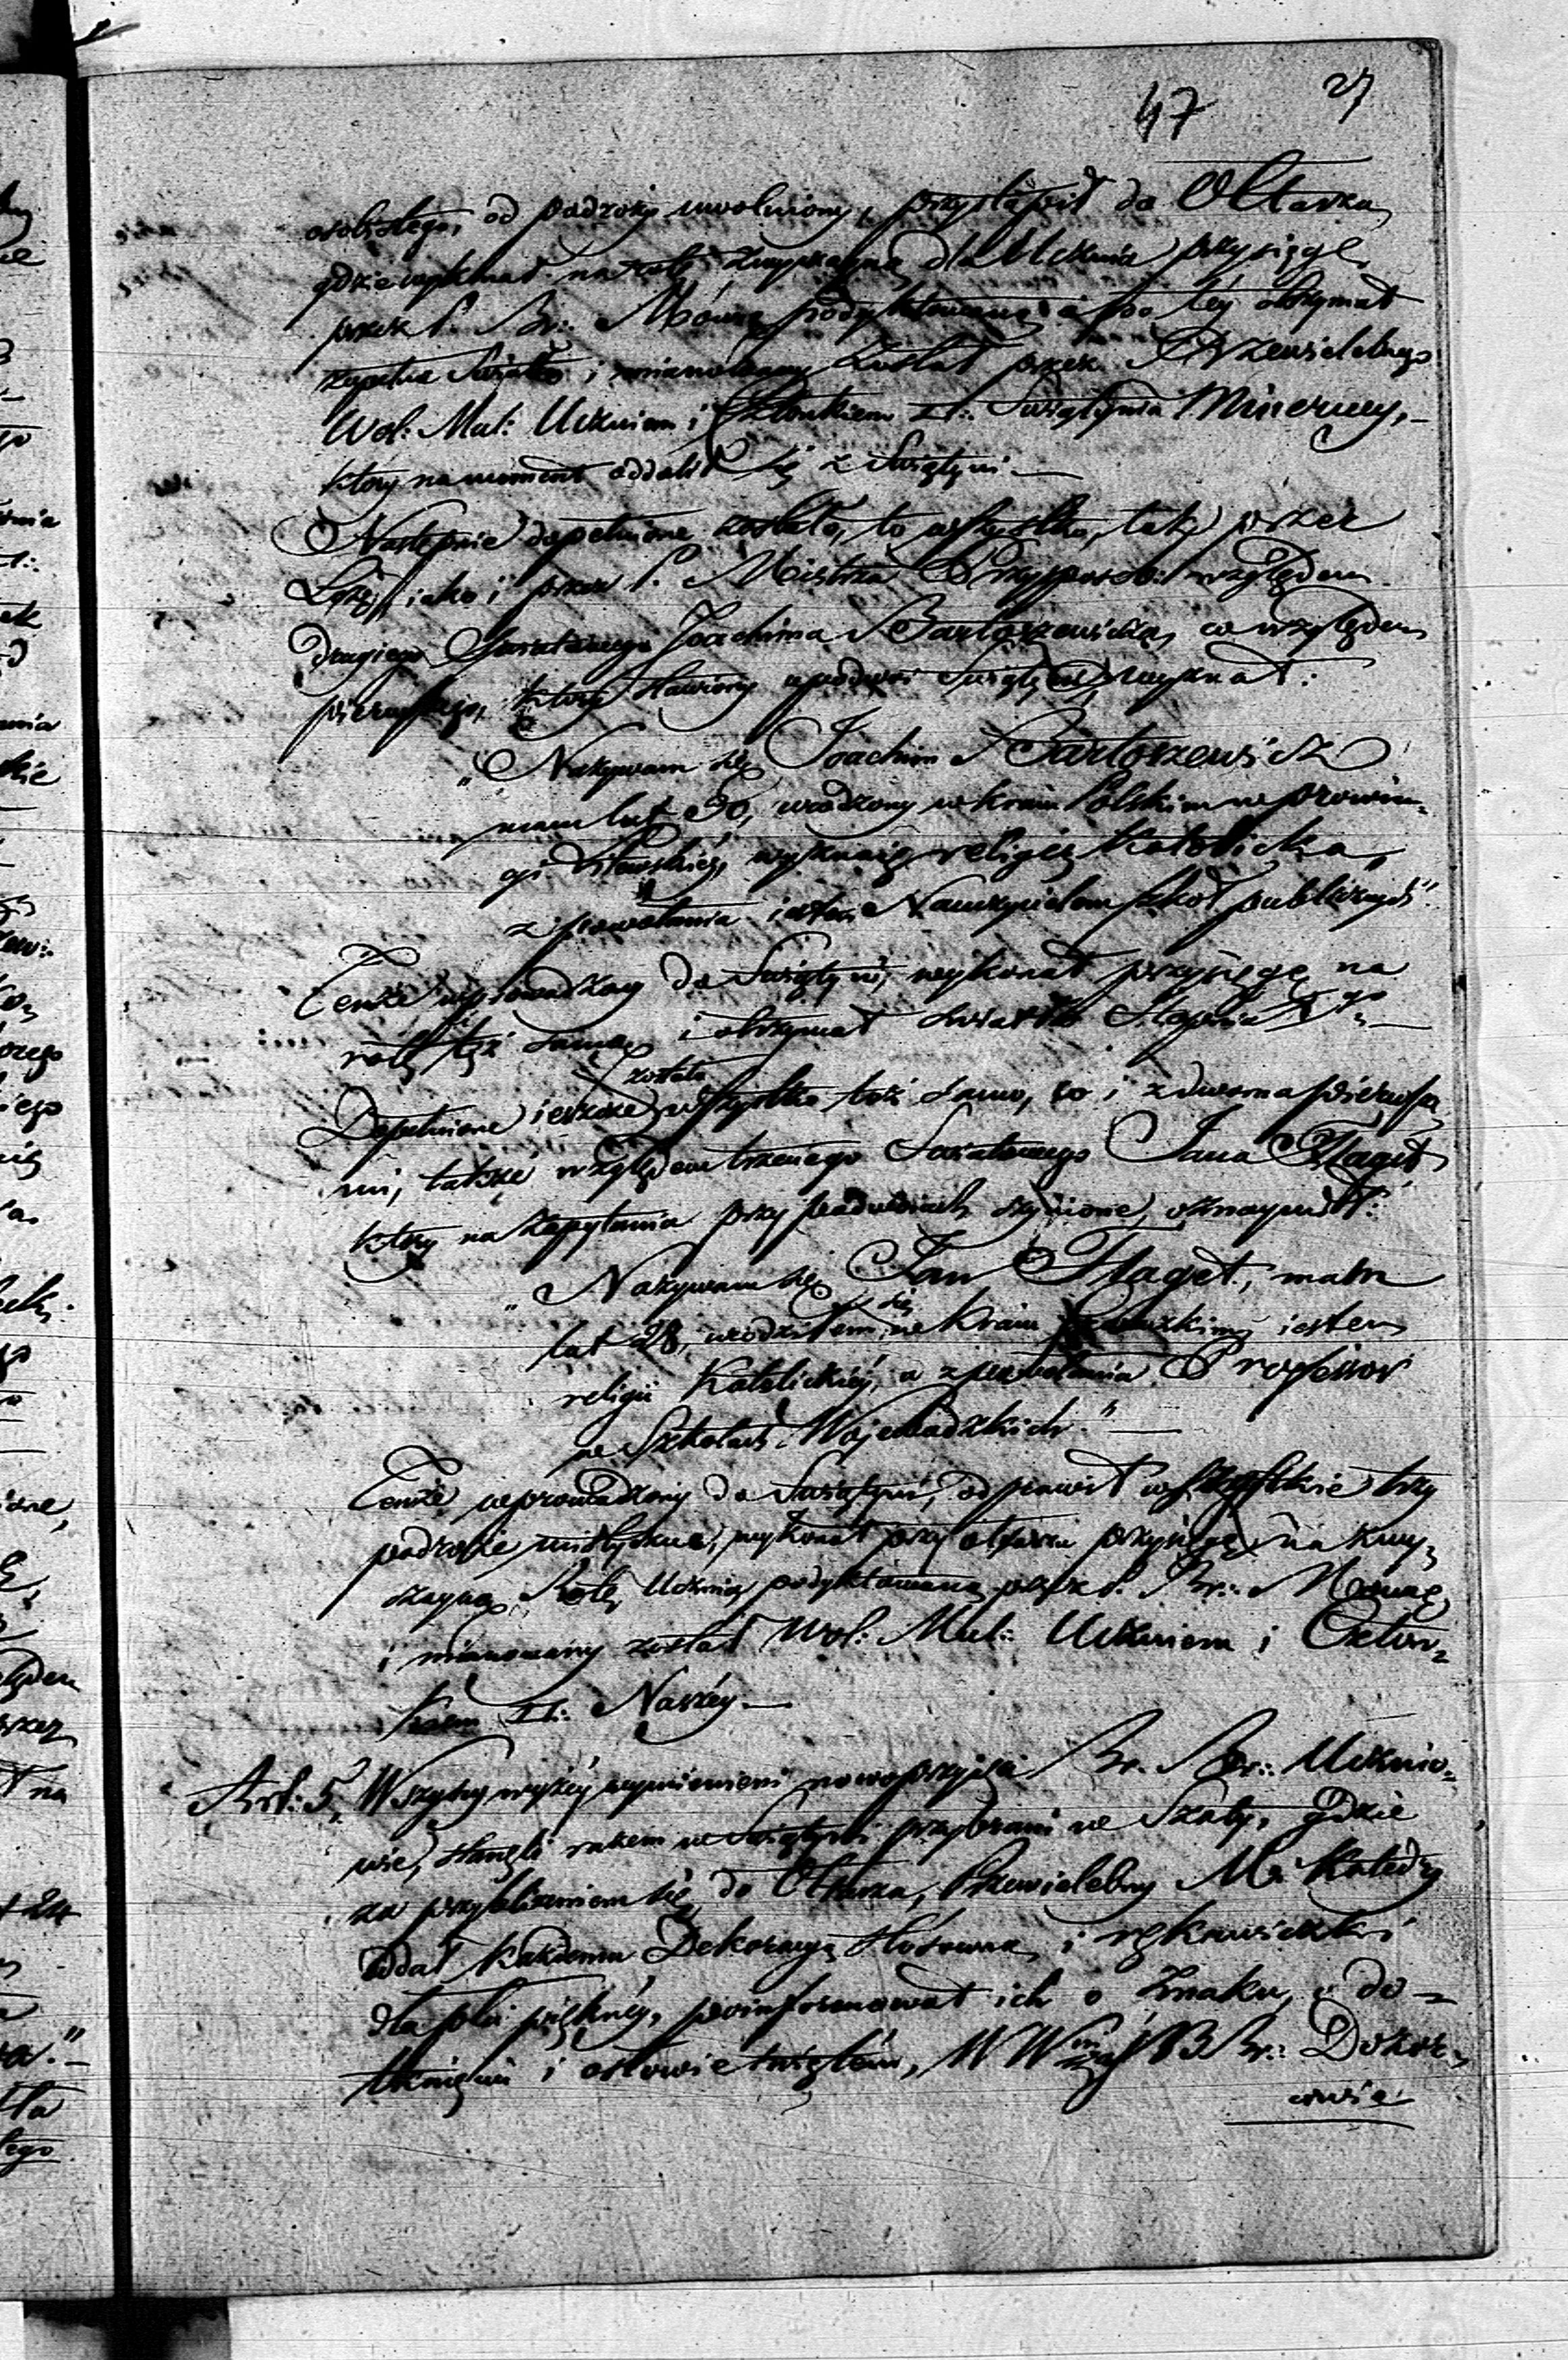 47 27
osobistego, od podroży uwolniony, przystąpił do Ołtarza,
gdzie wykonał na rotę zwyczayną dla Ucznia przysięgę,
przez P. Br:. Mówcę podyktowaną a po tey otrzymał
zupełne Swiatło, i mianowany został przez Przewielebnego
Wol: Mul: Uczniem i Członkiem □:. Swiątynia Minerwy,
ktory na moment oddalił się z Swiątyni. —
Następnie dopełnione zostało, to wszystko, tak przez
Lożę, iako i przez P. Mistrza Przysposob: względem
drugiego Swiatowego Joachima Bartoszewicza, co względem
pierwszego, ktory stawiony u podwoi Swiątyni, wyznał:
„Nazywam się Joachim Bartoszewicz
mam lat 30, urodzony w kraiu Polskim w prowin-
cyi Litewskiey, wyznaię religię Katolicką,
z powołania iestem Nauczycielem szkół publicznych"
Tenże wprowadzony do Swiątyni, wykonał przysięgę na
rotę tęż samą, i otrzymał światło Stopnia 1go —
Dopełnione ieszcze zostało wszystko toż samo, co i z dwoma pierwsze-
mi, także względem trzeciego Swiatowego Jana Flaget
ktory na zapytania przy podwoiach czynione, oznaymił:
„Nazywam się Jan Flaget, mam
lat 28, urodziłem się w Kraiu iestem
religii Katolickiey, a z powołania Professor
w Szkołach Wojewodzkich." —
Tenże wprowadzony do Swiątyni, odprawił wszystkie trzy
podroże mistyczne, wykonał przy ołtarzu przysięgę na zwy-
czayną Rotę Ucznia, podyktowaną przez P. Br:. Mowcę,
i mianowany został Wol: Mul:. Uczniem i Człon-
kiem □:. Naszey. —
Art: 5. Wszyscy wyżey wymienieni nowoprzyięci Br. Br:. Ucznio-
wie, stanęli razem w Swiątyni przybrani w Szaty, gdzie
za przybliżeniem się do Ołtarza, Przewielebny M. Katedry
oddał każdemu Dekoracyą stosowną, i rękawiczki
dla płci piękney, poinformował ich o znaku, o do-
tknięciu i o słowie świętem, WW BBr:. Dozor-
cowie